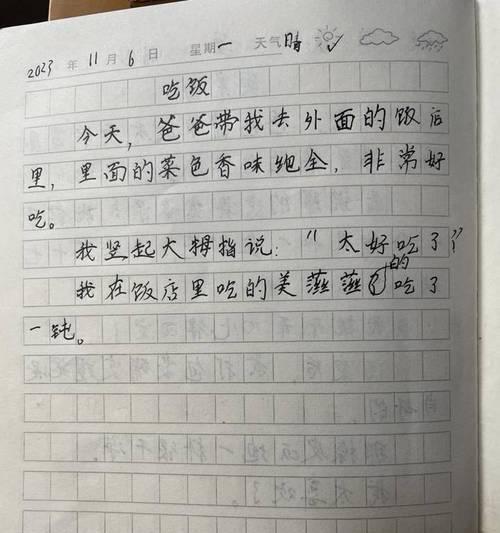 2023 年 11 月 6 日 星期一 天气晴
吃饭
今天，爸爸带我去外面的饭店
里，里面的菜色香味绝全，非常好
吃。
我竖起大拇指说：“太好吃了”
我在饭店里吃的美蕴蕴的吃了
一钝。